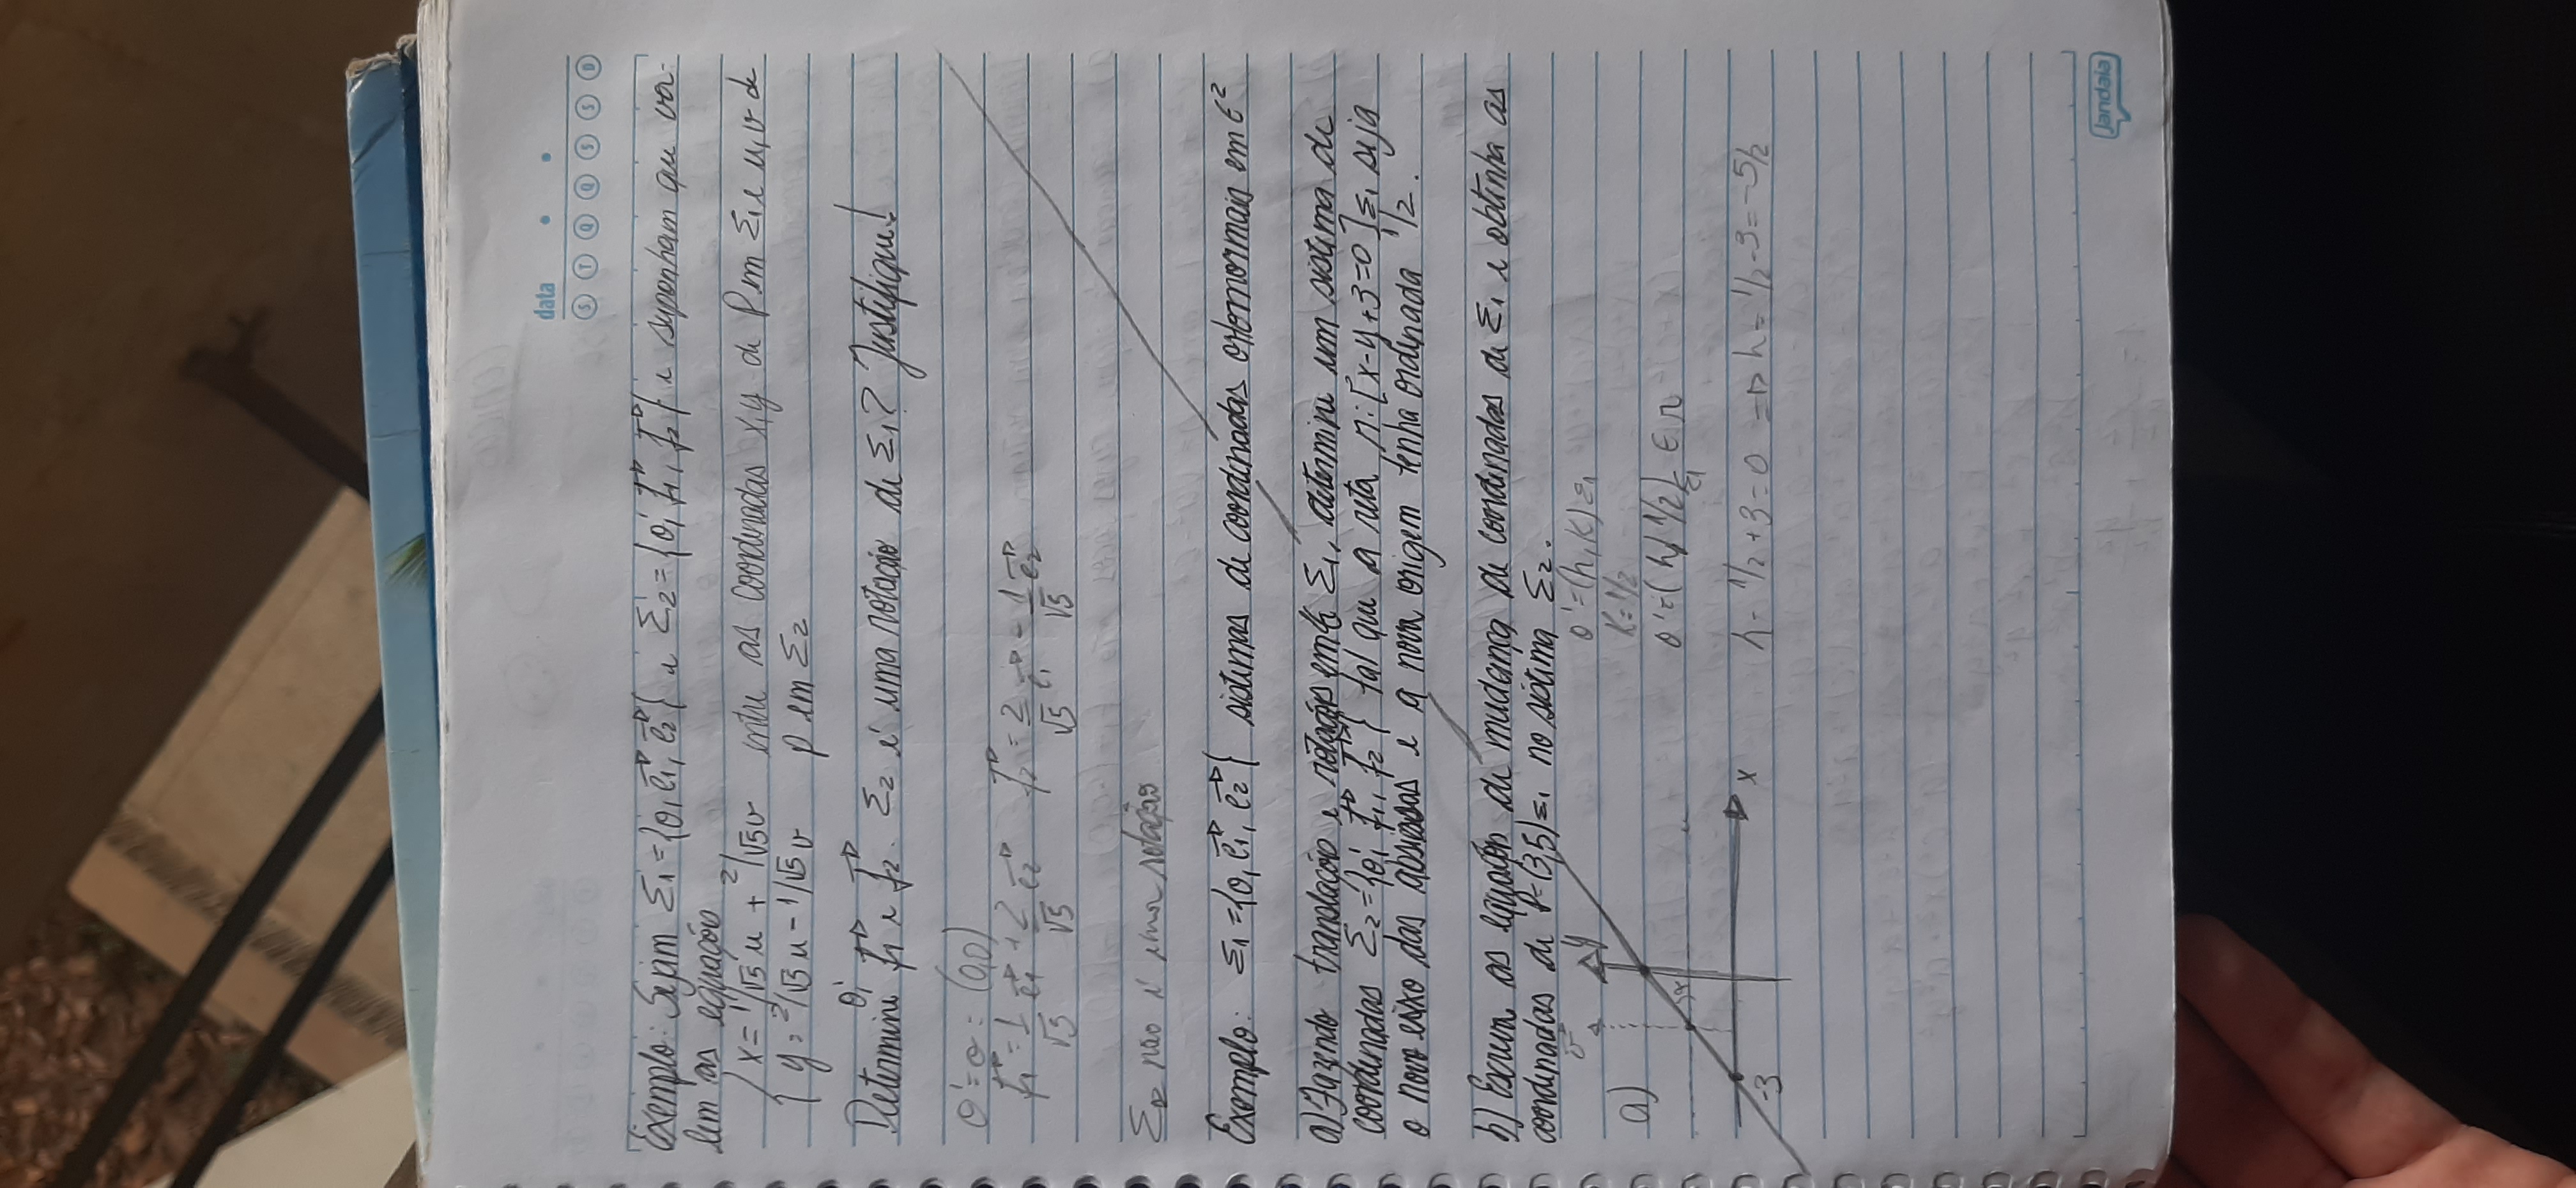 data
S T Q Q S S D
Exemplo: Sejam Σ1 = {0, e1, e2} e Σ2 = {0', f1, f2} e suponham que va-
lem as equação
x = 1/√5 u + 2/√5 v entre as coordenadas x,y de P em Σ1 e u,v de
y = 2/√5 u - 1/√5 v P em Σ2
Determine 0', f1 e f2. Σ2 é uma rotação de Σ1? Justifique!
0' = 0 = (0,0)
f1 = 1/√5 e1 + 2/√5 e2 f2 = 2/√5 e1 - 1/√5 e2
Σ2 não é uma rotação
Exemplo: Σ1 = {0, e1, e2} sistemas de coordenadas ortonormais em E²
a) Fazendo translação e rotação em Σ1, determine um sistema de
coordenadas Σ2 = {0', f1, f2} tal que a reta r: [x-y+3=0]Σ1 seja
o novo eixo das abscissas e a nova origem tenha ordinada 1/2.
b) Escreva as equações de mudança de coordenadas de Σ1 e obtenha as
coordenadas de P=(3,5)Σ1 no sistema Σ2.
a)
v
y
x
-3
0' = (h,K)Σ1
K = 1/2
0' = (h, 1/2)Σ1 ∈ r
h - 1/2 + 3 = 0 ⇒ h = 1/2 - 3 = -5/2
jandaia